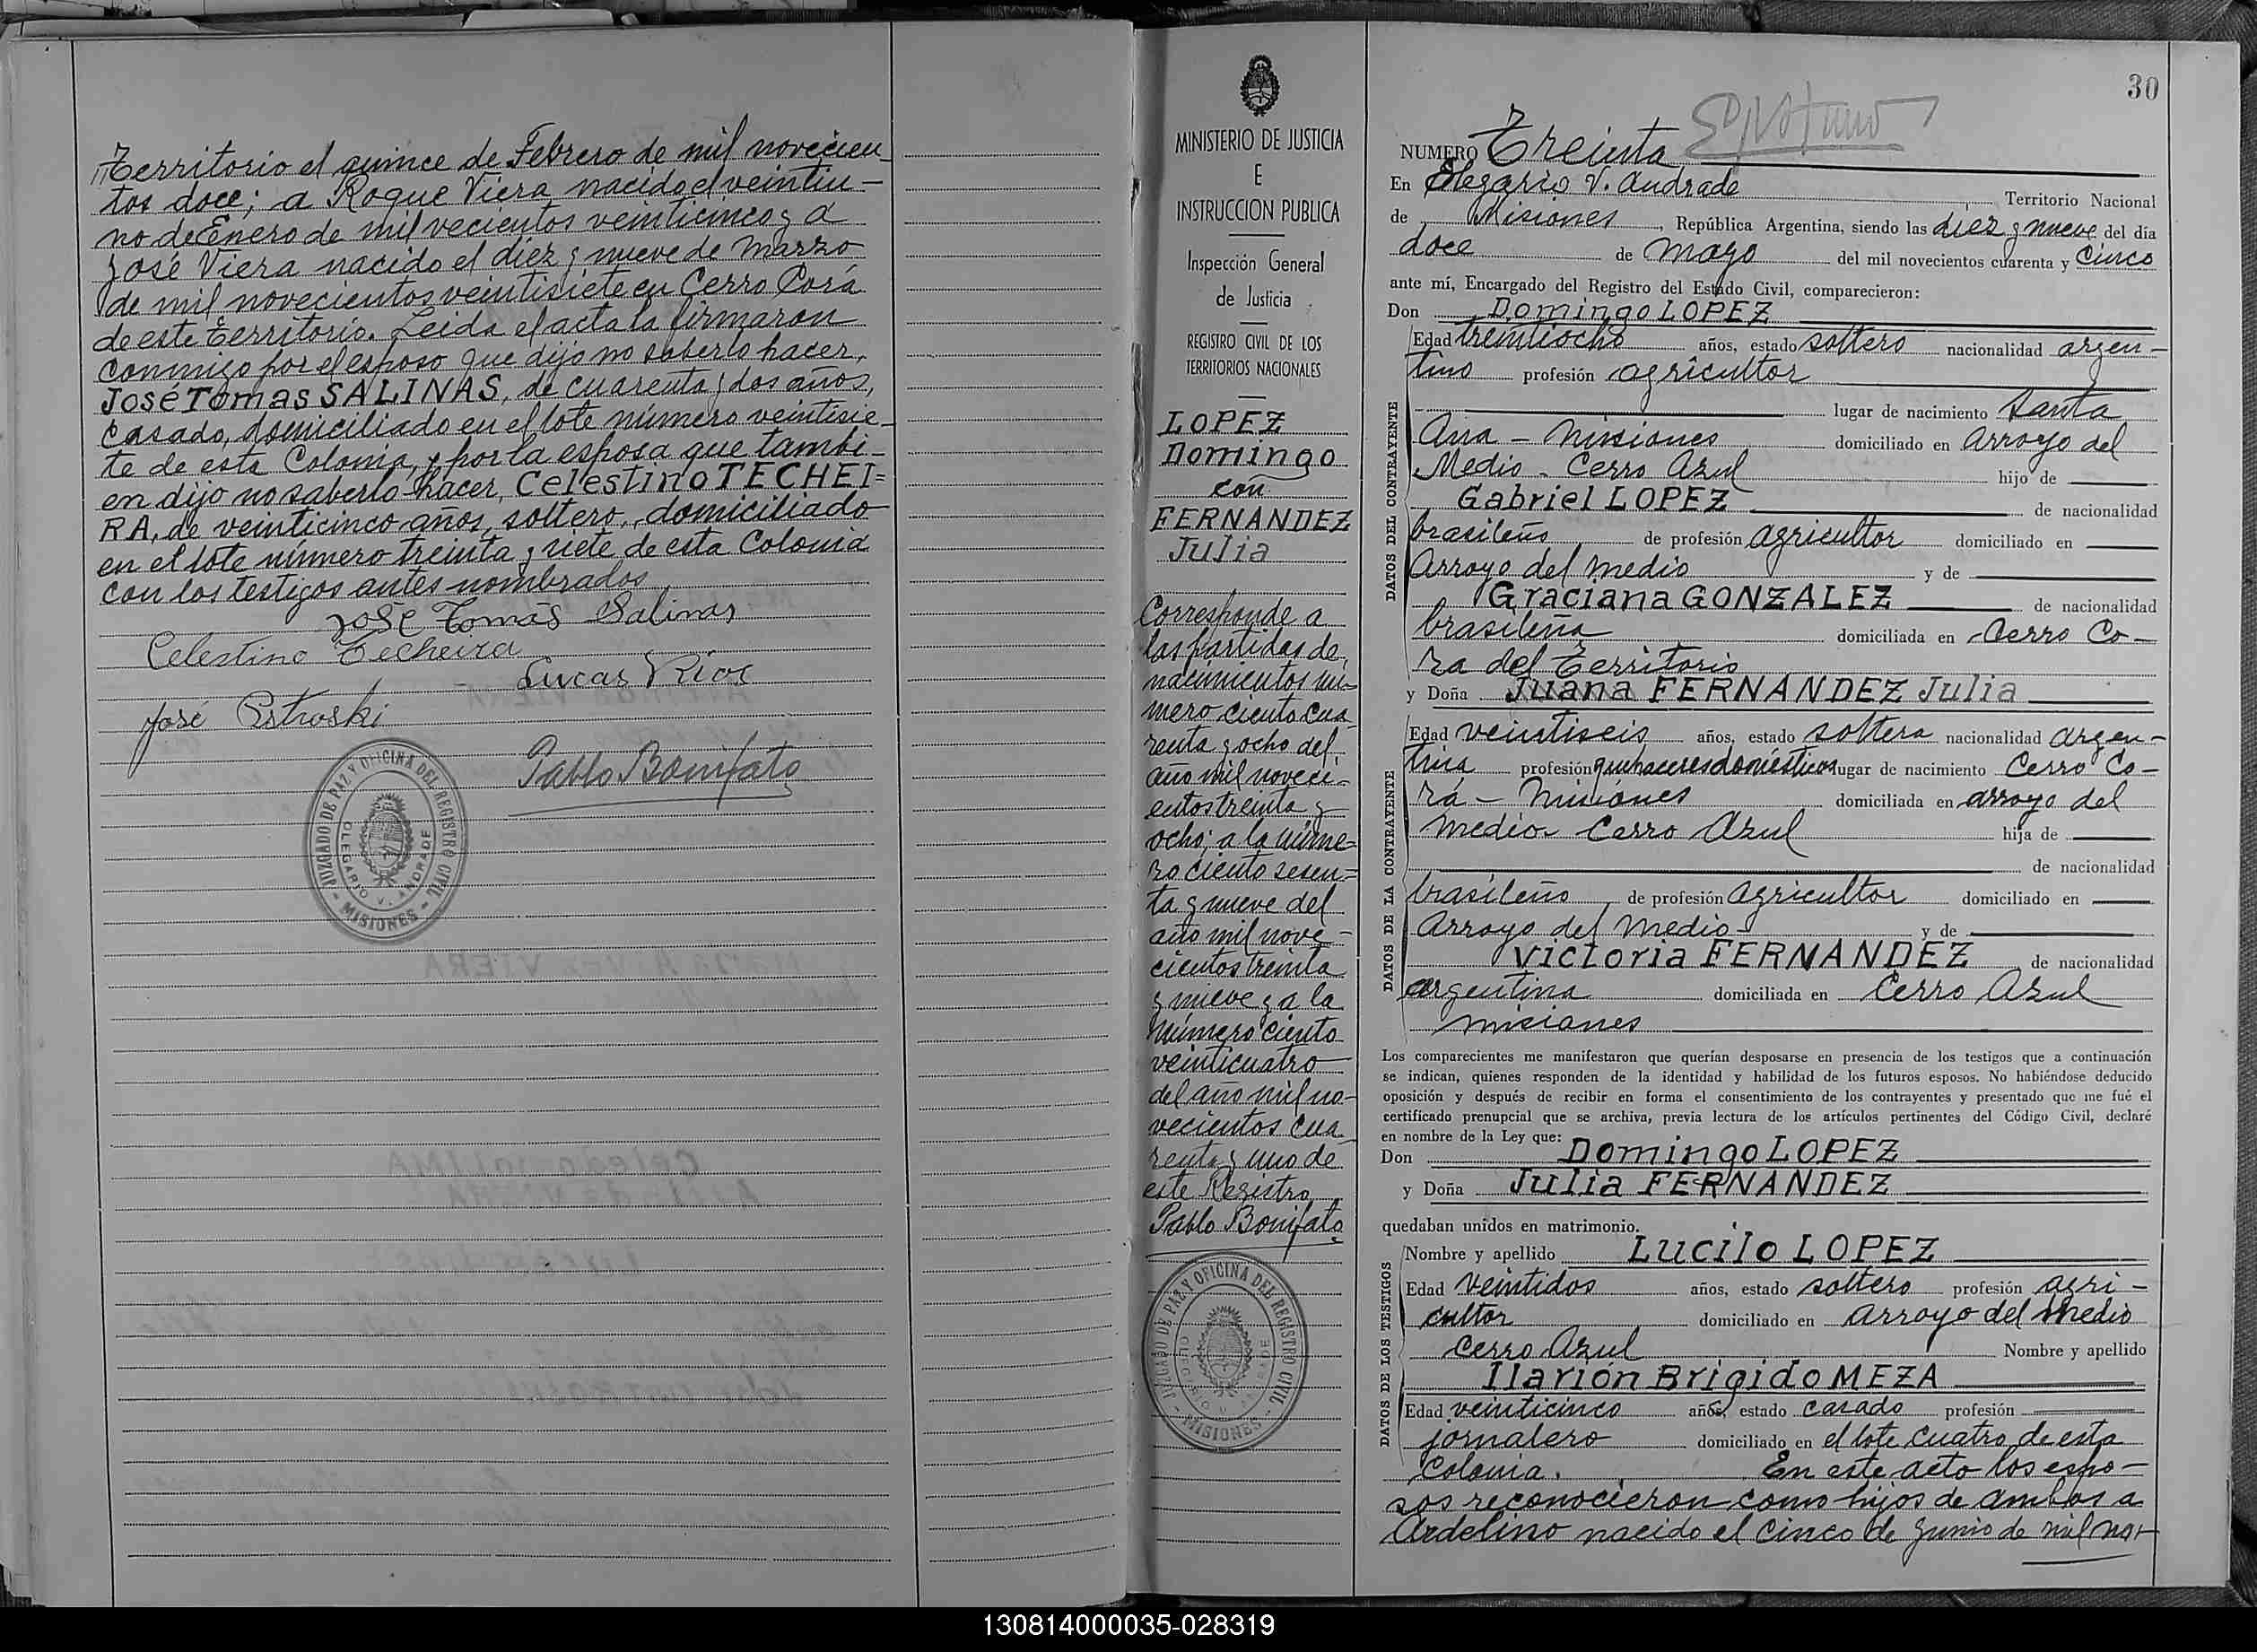 Territorio el quince de Febrero de mil novecien-
tos doce; a Roque Viera nacido el veintiu-
no de Enero de mil vecientos veinticinco y a
José Viera nacido el diez y nueve de Marzo
de mil novecientos veintisiete en Cerro Corá
de este Territorio. Leida el acta la firmaron
conmigo por el esposo que dijo no saberlo hacer,
José Tomas SALINAS, de cuarenta y dos años,
casado, domiciliado en el lote número veintisie-
te de esta Colonia, y por la esposa que tambi-
en dijo no saberlo hacer, Celestino TECHEI=
RA, de veinticinco años, soltero, domiciliado
en el lote número treinta y siete de esta Colonia
con los testigos antes nombrados
José Tomás Salinas
Celestino Techeira
Lucas Rios
José
Pablo Bonifato
JUZGADO DE PAZ Y OFICINA DEL REGISTRO CIVIL
OLEGARIO V. ANDRADE
- MISIONES -
MINISTERIO DE JUSTICIA
E
INSTRUCCION PUBLICA
Inspección General
de Justicia
REGISTRO CIVIL DE LOS
TERRITORIOS NACIONALES
LOPEZ
Domingo
con
FERNANDEZ
Julia
Corresponde a
las partidas de
nacimientos nú-
mero ciento cua
renta y ocho del
año mil noveci-
entos treinta y
ocho; a la núme-
ro ciento sesen-
ta y nueve del
año mil nove-
cientos treinta
y nueve y a la
número ciento
veinticuatro
del año mil no-
vecientos cua
renta y uno de
este Registro
Pablo Bonifato
JUZGADO DE PAZ Y OFICINA DEL REGISTRO CIVIL
- MISIONES -
30
NUMERO Treinta
En Olegario V. Andrade, Territorio Nacional
de Misiones, República Argentina, siendo las diez y nueve del día
doce de Mayo del mil novecientos cuarenta y cinco
ante mí, Encargado del Registro del Estado Civil, comparecieron:
Don Domingo LOPEZ
DATOS DEL CONTRAYENTE
Edad treintiocho años, estado soltero nacionalidad argen-
tino profesión agricultor
lugar de nacimiento Santa
Ana - Misiones domiciliado en Arroyo del
Medio - Cerro Azul hijo de
Gabriel LOPEZ de nacionalidad
brasileño de profesión agricultor domiciliado en
Arroyo del Medio y de
Graciana GONZALEZ de nacionalidad
brasileña domiciliada en Cerro Co-
ra del Territorio
y Doña Juana FERNANDEZ Julia
DATOS DE LA CONTRAYENTE
Edad veintiseis años, estado soltera nacionalidad argen-
tina profesión quehaceres domésticos lugar de nacimiento Cerro Co-
rá - Misiones domiciliada en Arroyo del
Medio - Cerro Azul hija de
de nacionalidad
brasileño de profesión agricultor domiciliado en
Arroyo del Medio y de
Victoria FERNANDEZ de nacionalidad
argentina domiciliada en Cerro Azul
Misiones
Los comparecientes me manifestaron que querían desposarse en presencia de los testigos que a continuación
se indican, quienes responden de la identidad y habilidad de los futuros esposos. No habiéndose deducido
oposición y después de recibir en forma el consentimiento de los contrayentes y presentado que me fué el
certificado prenupcial que se archiva, previa lectura de los artículos pertinentes del Código Civil, declaré
en nombre de la Ley que:
Don Domingo LOPEZ
y Doña Julia FERNANDEZ
quedaban unidos en matrimonio.
DATOS DE LOS TESTIGOS
Nombre y apellido Lucilo LOPEZ
Edad veintidos años, estado soltero profesión agri-
cultor domiciliado en Arroyo del Medio
Cerro Azul Nombre y apellido
Ilarión Brigido MEZA
Edad veinticinco años, estado casado profesión
jornalero domiciliado en el lote cuatro de esta
Colonia. En este acto los espo-
sos reconocieron como hijos de ambos a
Ardelino nacido el cinco de Junio de mil no-
130814000035-028319